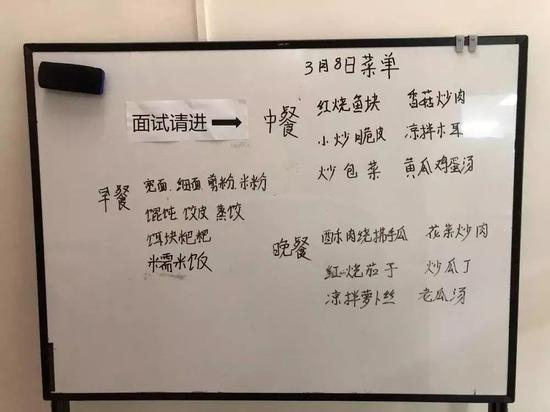 3月8日菜单
面试请进
中餐 红烧鱼块 香菇炒肉
小炒脆皮 凉拌木耳
炒包菜 黄瓜鸡蛋汤
早餐 宽面.细面.剪粉.米粉
馄饨 饺皮 蒸饺
饵块粑粑
糯米饭
晚餐 酥肉烧拼手瓜 花菜炒肉
红烧茄子 炒瓜丁
凉拌萝卜丝 老瓜汤